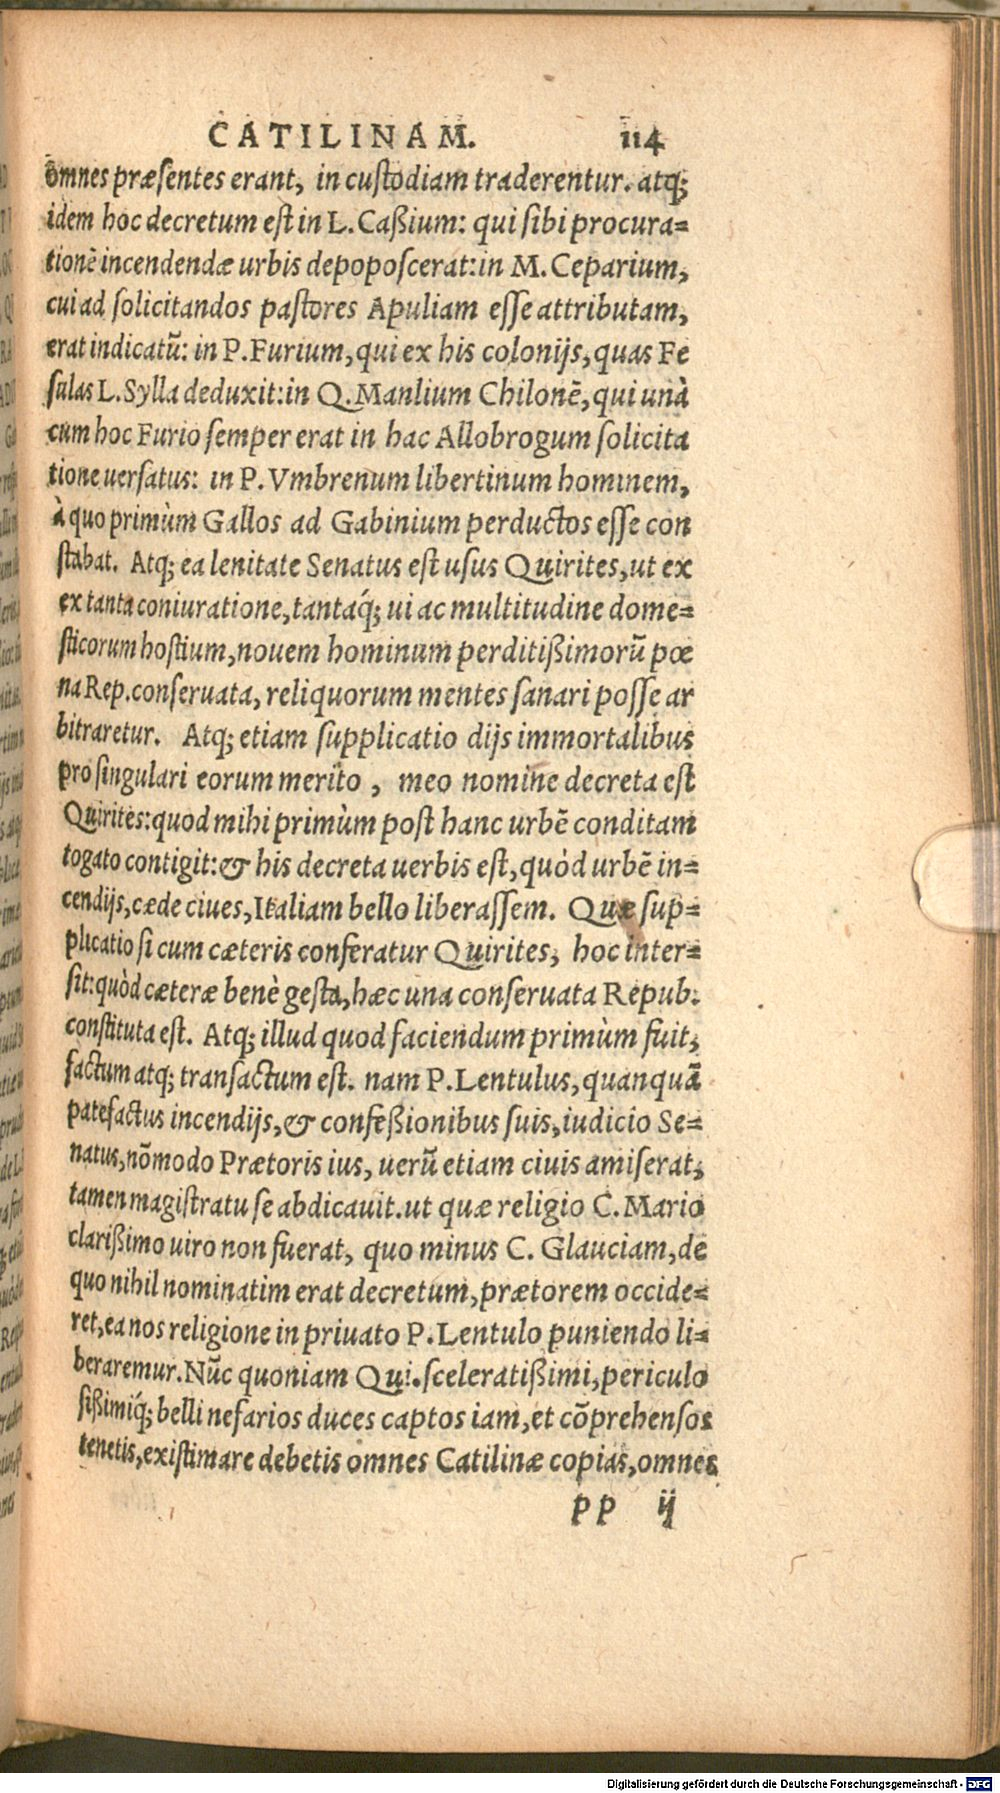 CATILINAM. 114
omnes præsentes erant, in custodiam traderentur. atq;
idem hoc decretum est in L. Caßium: qui sibi procura=
tionē incendendæ urbis depoposcerat: in M. Ceparium,
cui ad solicitandos pastores Apuliam esse attributam,
erat indicatū: in P. Furium, qui ex his colonijs, quas Fe
sulas L. Sylla deduxit: in Q. Manlium Chilonē, qui unà
cum hoc Furio semper erat in hac Allobrogum solicita
tione uersatus: in P. Vmbrenum libertinum hominem,
à quo primùm Gallos ad Gabinium perductos esse con
stabat. Atq; ea lenitate Senatus est usus Quirites, ut ex
ex tanta coniuratione, tantaq́; ui ac multitudine dome=
sticorum hostium, nouem hominum perditißimorū pœ
na Rep. conseruata, reliquorum mentes sanari posse ar
bitraretur. Atq; etiam supplicatio dijs immortalibus
pro singulari eorum merito, meo nomine decreta est
Quirites: quod mihi primùm post hanc urbē conditam
togato contigit: & his decreta uerbis est, quòd urbē in=
cendijs, cæde ciues, Italiam bello liberassem. Quæ sup=
plicatio si cum cæteris conferatur Quirites, hoc inter=
sit: quòd cæteræ benè gesta, hæc una conseruata Repub.
constituta est. Atq; illud quod faciendum primùm fuit,
factum atq; transactum est. nam P. Lentulus, quanquā
patefactus incendijs, & confeßionibus suis, iudicio Se=
natus, nō modo Prætoris ius, uerū etiam ciuis amiserat,
tamen magistratu se abdicauit. ut quæ religio C. Mario
clarißimo uiro non fuerat, quo minus C. Glauciam, de
quo nihil nominatim erat decretum, prætorem occide=
ret, ea nos religione in priuato P. Lentulo puniendo li=
beraremur. Nūc quoniam Qui. sceleratißimi, periculo
sißimiq́; belli nefarios duces captos iam, et cōprehensos
tenetis, existimare debetis omnes Catilinæ copias, omnes
pp ij
Digitalisierung gefördert durch die Deutsche Forschungsgemeinschaft - DFG